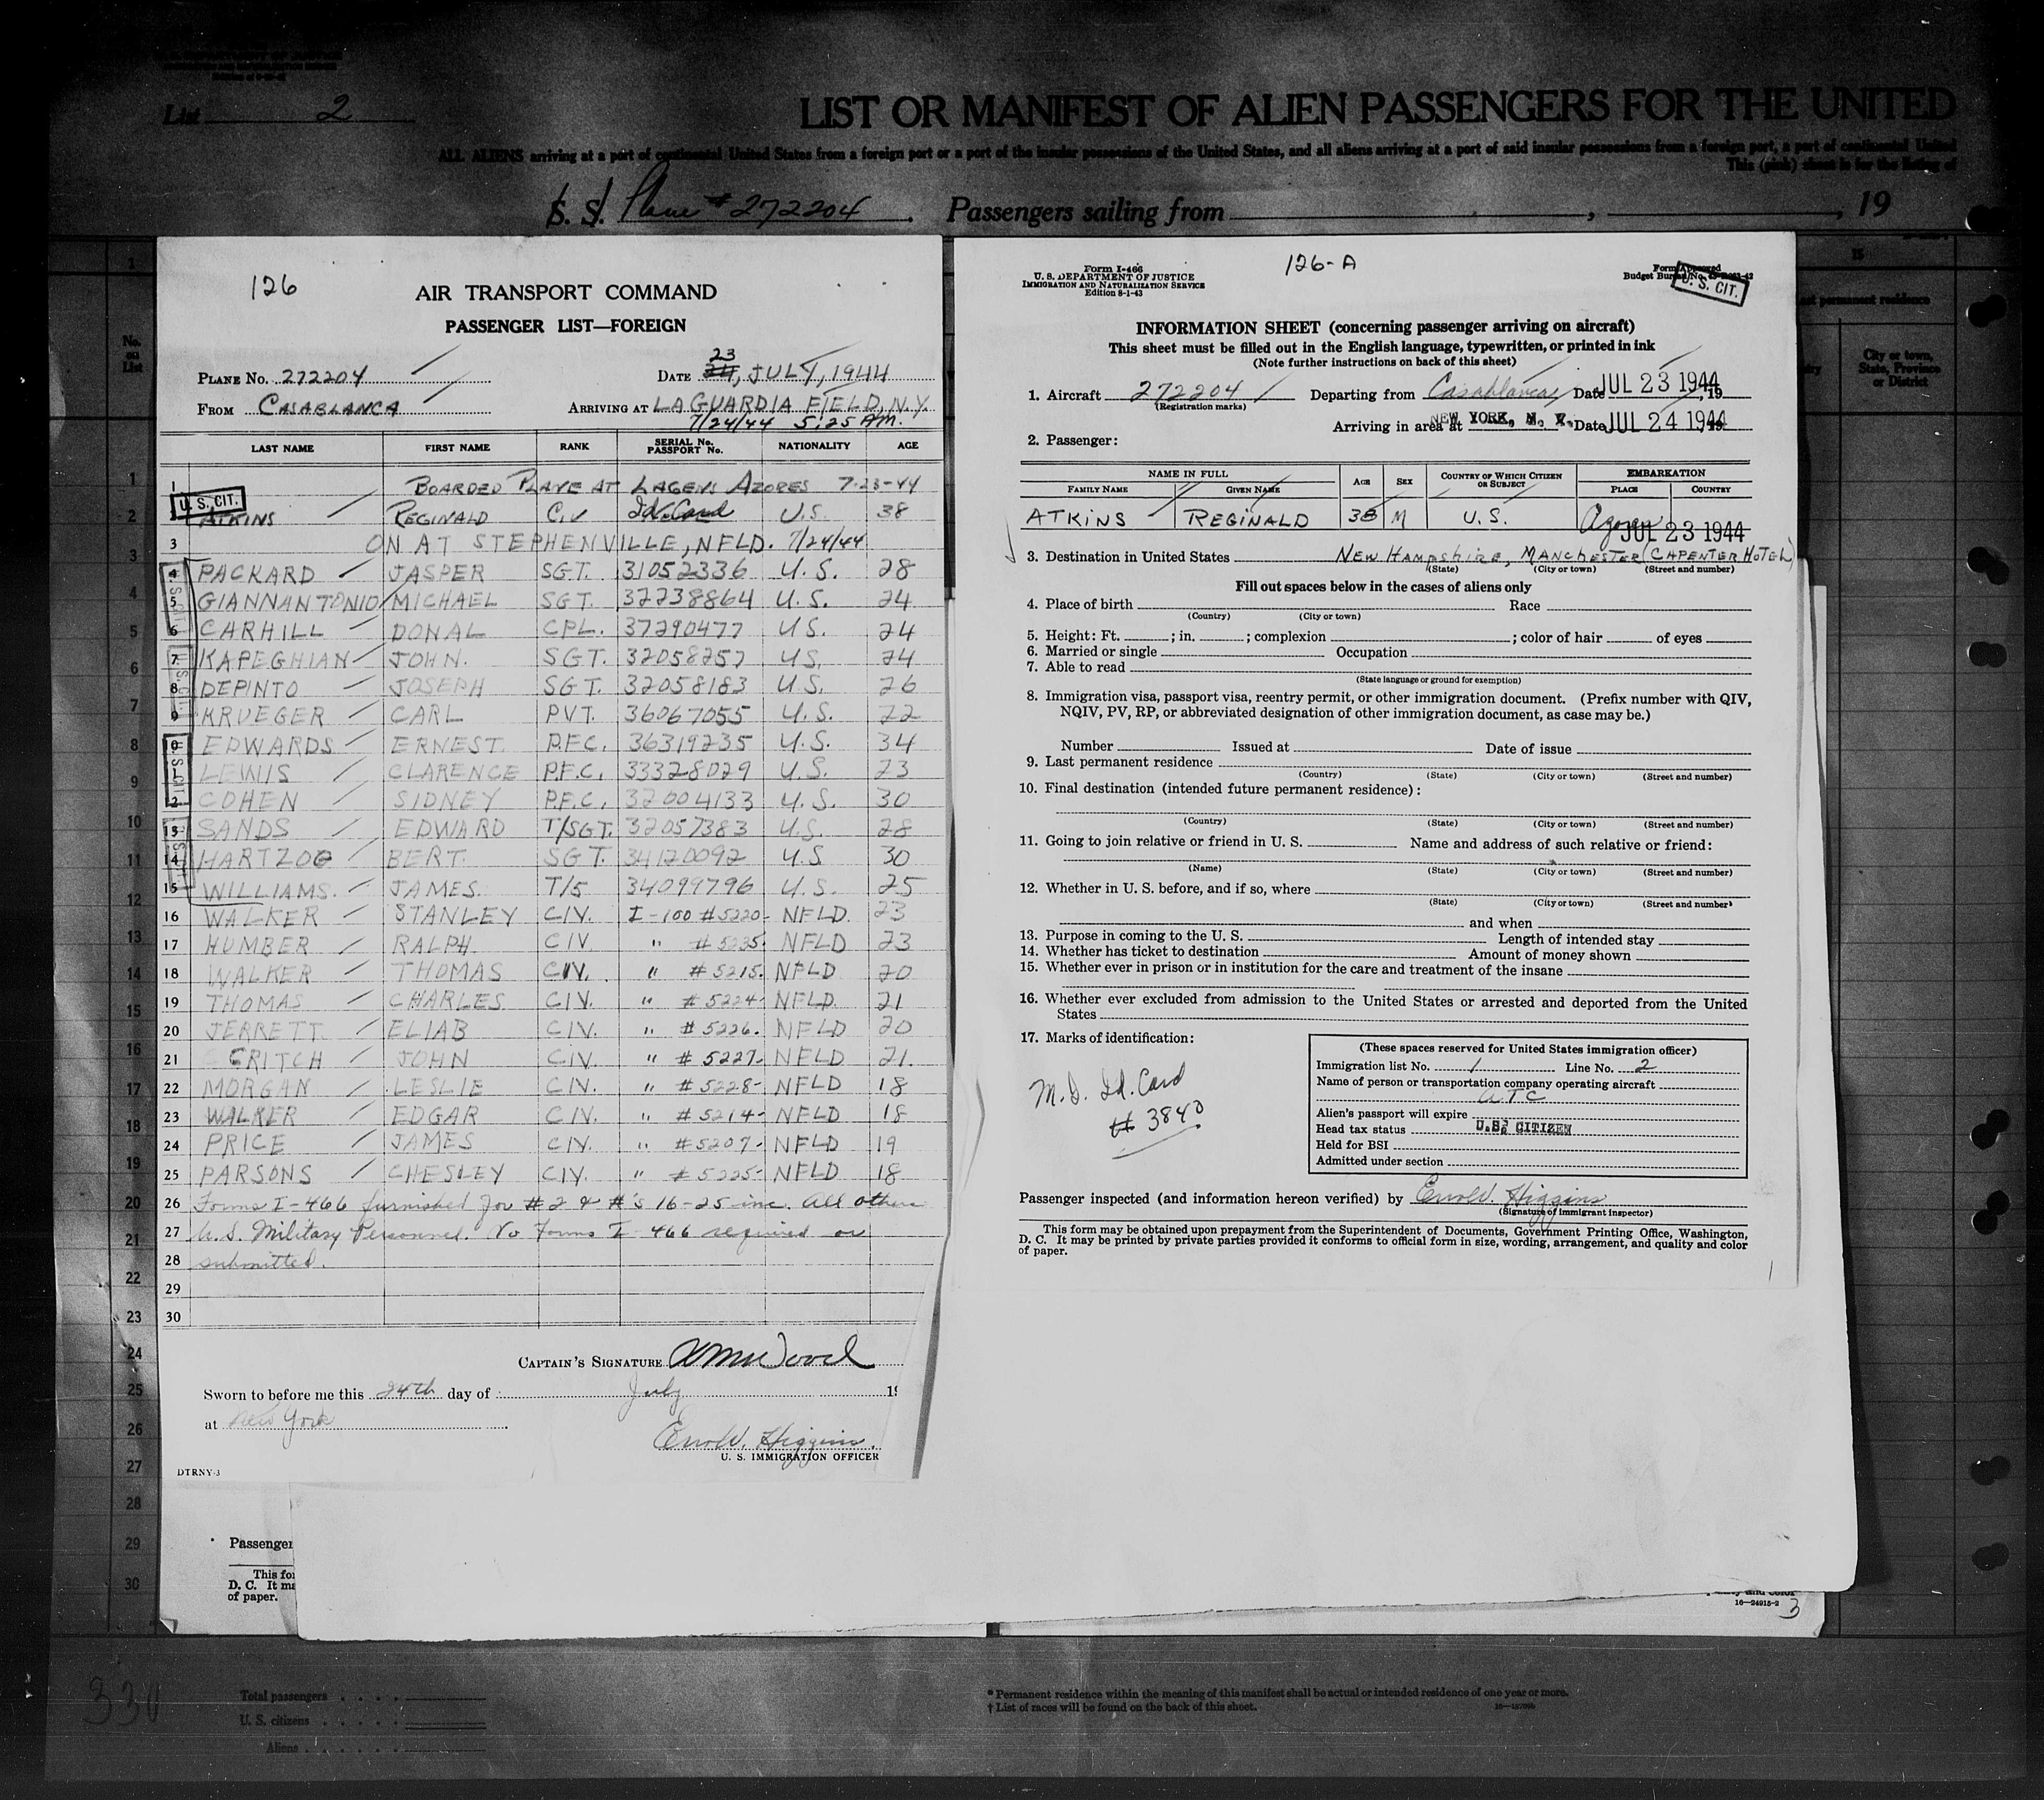 List 2
LIST OR MANIFEST OF ALIEN PASSENGERS FOR THE UNITED
ALL ALIENS arriving at a port of continental United States from a foreign port or a port of the insular possessions of the United States, and all aliens arriving at a port of said insular possessions from a foreign port, a port of continental United
This (pink) sheet is for the listing of
S. S. Plane # 272204. Passengers sailing from , , 19
126
AIR TRANSPORT COMMAND
PASSENGER LIST—FOREIGN
23
PLANE No. 272204 DATE 24, JULY, 1944
FROM CASABLANCA ARRIVING AT LA GUARDIA FIELD, N.Y.
7/24/44 5:25 AM.
LAST NAME FIRST NAME RANK SERIAL No. PASSPORT No. NATIONALITY AGE
1 BOARDED PLANE AT LAGENS AZORES 7-23-44
U. S. CIT.
2 ATKINS REGINALD CIV Id. Card U.S. 38
3 ON AT STEPHENVILLE, NFLD. 7/24/44
4 PACKARD JASPER SGT. 31052336 U.S. 28
5 GIANNANTONIO MICHAEL SGT. 32238864 U.S. 24
6 CARHILL DONAL CPL. 37290477 US. 24
7 KAPEGHIAN JOHN. SGT. 32058257 US. 24
8 DEPINTO JOSEPH SGT. 32058183 US. 26
9 KRUEGER CARL PVT. 36067055 U.S. 22
10 EDWARDS ERNEST. P.F.C. 36319235 U.S. 34
11 LEWIS CLARENCE P.F.C. 33328029 U.S. 23
12 COHEN SIDNEY P.F.C. 32004133 U.S. 30
13 SANDS EDWARD T/SGT. 32057383 U.S. 28
14 HARTZOG BERT. SGT. 34120092 U.S 30
15 WILLIAMS. JAMES. T/5 34099796 U.S. 25
16 WALKER STANLEY CIV. I-100 #5220- NFLD. 23
17 HUMBER RALPH. CIV. " #5235. NFLD 23
18 WALKER THOMAS CIV. " #5215. NFLD 20
19 THOMAS CHARLES. CIV. " #5224- NFLD. 21
20 JERRETT. ELIAB CIV. " #5226. NFLD 20
21 CRITCH JOHN CIV. " #5227- NFLD 21.
22 MORGAN LESLIE CIV. " #5228- NFLD 18
23 WALKER EDGAR CIV. " #5214- NFLD 18
24 PRICE JAMES CIV. " #5207- NFLD 19
25 PARSONS CHESLEY CIV. " #5225- NFLD 18
26 Forms I-466 furnished for #2 & #'s 16-25 inc. All others
27 U.S. Military Personnel. No Forms I-466 required or
28 submitted.
29
30
CAPTAIN'S SIGNATURE
Sworn to before me this 24th day of July 19
at New York
Errol V. Higgins.
U. S. IMMIGRATION OFFICER
DTRNY-3
Passenger
This for
D. C. It ma
of paper.
126-A
Form I-466
U. S. DEPARTMENT OF JUSTICE
IMMIGRATION AND NATURALIZATION SERVICE
Edition 8-1-43
Form Approved
Budget Bureau No.
U. S. CIT.
INFORMATION SHEET (concerning passenger arriving on aircraft)
This sheet must be filled out in the English language, typewritten, or printed in ink
(Note further instructions on back of this sheet)
1. Aircraft 272204 Departing from Casablanca, Date JUL 23 1944, 19
(Registration marks)
Arriving in area at NEW YORK, N. Y. Date JUL 24 1944
2. Passenger:
NAME IN FULL AGE SEX COUNTRY OF WHICH CITIZEN OR SUBJECT EMBARKATION
FAMILY NAME GIVEN NAME PLACE COUNTRY
ATKINS REGINALD 38 M U.S. Azores JUL 23 1944
3. Destination in United States NEW HAMPSHIRE, MANCHESTER (CARPENTER HOTEL)
(State) (City or town) (Street and number)
Fill out spaces below in the cases of aliens only
4. Place of birth Race
(Country) (City or town)
5. Height: Ft. ; in. ; complexion ; color of hair of eyes
6. Married or single Occupation
7. Able to read
(State language or ground for exemption)
8. Immigration visa, passport visa, reentry permit, or other immigration document. (Prefix number with QIV,
NQIV, PV, RP, or abbreviated designation of other immigration document, as case may be.)
Number Issued at Date of issue
9. Last permanent residence
(Country) (State) (City or town) (Street and number)
10. Final destination (intended future permanent residence):
(Country) (State) (City or town) (Street and number)
11. Going to join relative or friend in U. S. Name and address of such relative or friend:
(Name) (State) (City or town) (Street and number)
12. Whether in U. S. before, and if so, where
(State) (City or town) (Street and number)
and when
13. Purpose in coming to the U. S. Length of intended stay
14. Whether has ticket to destination Amount of money shown
15. Whether ever in prison or in institution for the care and treatment of the insane
16. Whether ever excluded from admission to the United States or arrested and deported from the United
States
17. Marks of identification:
M.I. Id. Card
# 3840
(These spaces reserved for United States immigration officer)
Immigration list No. 1 Line No. 2
Name of person or transportation company operating aircraft
ATC
Alien's passport will expire
Head tax status U.S. CITIZEN
Held for BSI
Admitted under section
Passenger inspected (and information hereon verified) by Errol V. Higgins
(Signature of immigrant inspector)
This form may be obtained upon prepayment from the Superintendent of Documents, Government Printing Office, Washington,
D. C. It may be printed by private parties provided it conforms to official form in size, wording, arrangement, and quality and color
of paper.
16—24915-2
3
No. on List
City or town, State, Province or District
330
Total passengers
U. S. citizens
Aliens
* Permanent residence within the meaning of this manifest shall be actual or intended residence of one year or more.
† List of races will be found on the back of this sheet.